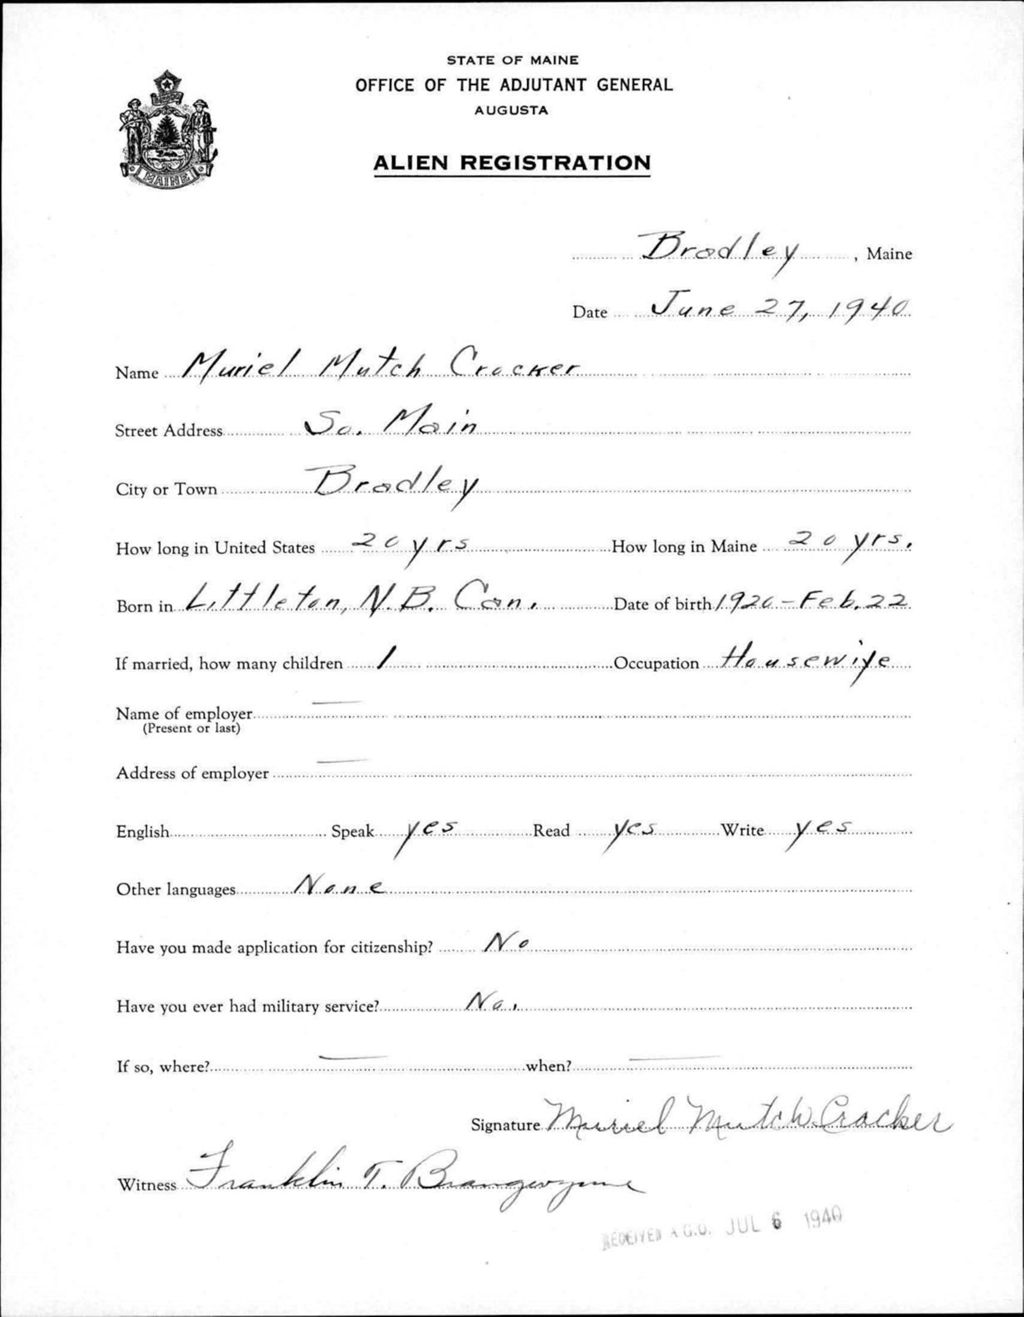 STATE OF MAINE
OFFICE OF THE ADJUTANT GENERAL
AUGUSTA
ALIEN REGISTRATION
MAINE
Bradley, Maine
Date June 27, 1940
Name Muriel Mutch Crocker
Street Address So. Main
City or Town Bradley
How long in United States 20 yrs How long in Maine 20 yrs.
Born in Littleton, N.B. Can. Date of birth 1920 - Feb. 22
If married, how many children 1 Occupation Housewife
Name of employer —
(Present or last)
Address of employer —
English Speak yes Read yes Write yes
Other languages None
Have you made application for citizenship? No
Have you ever had military service? No.
If so, where? — when? —
Signature Muriel Mutch Crocker
Witness Franklin T. Brangwynne
RECEIVED A.G.O. JUL 6 1940